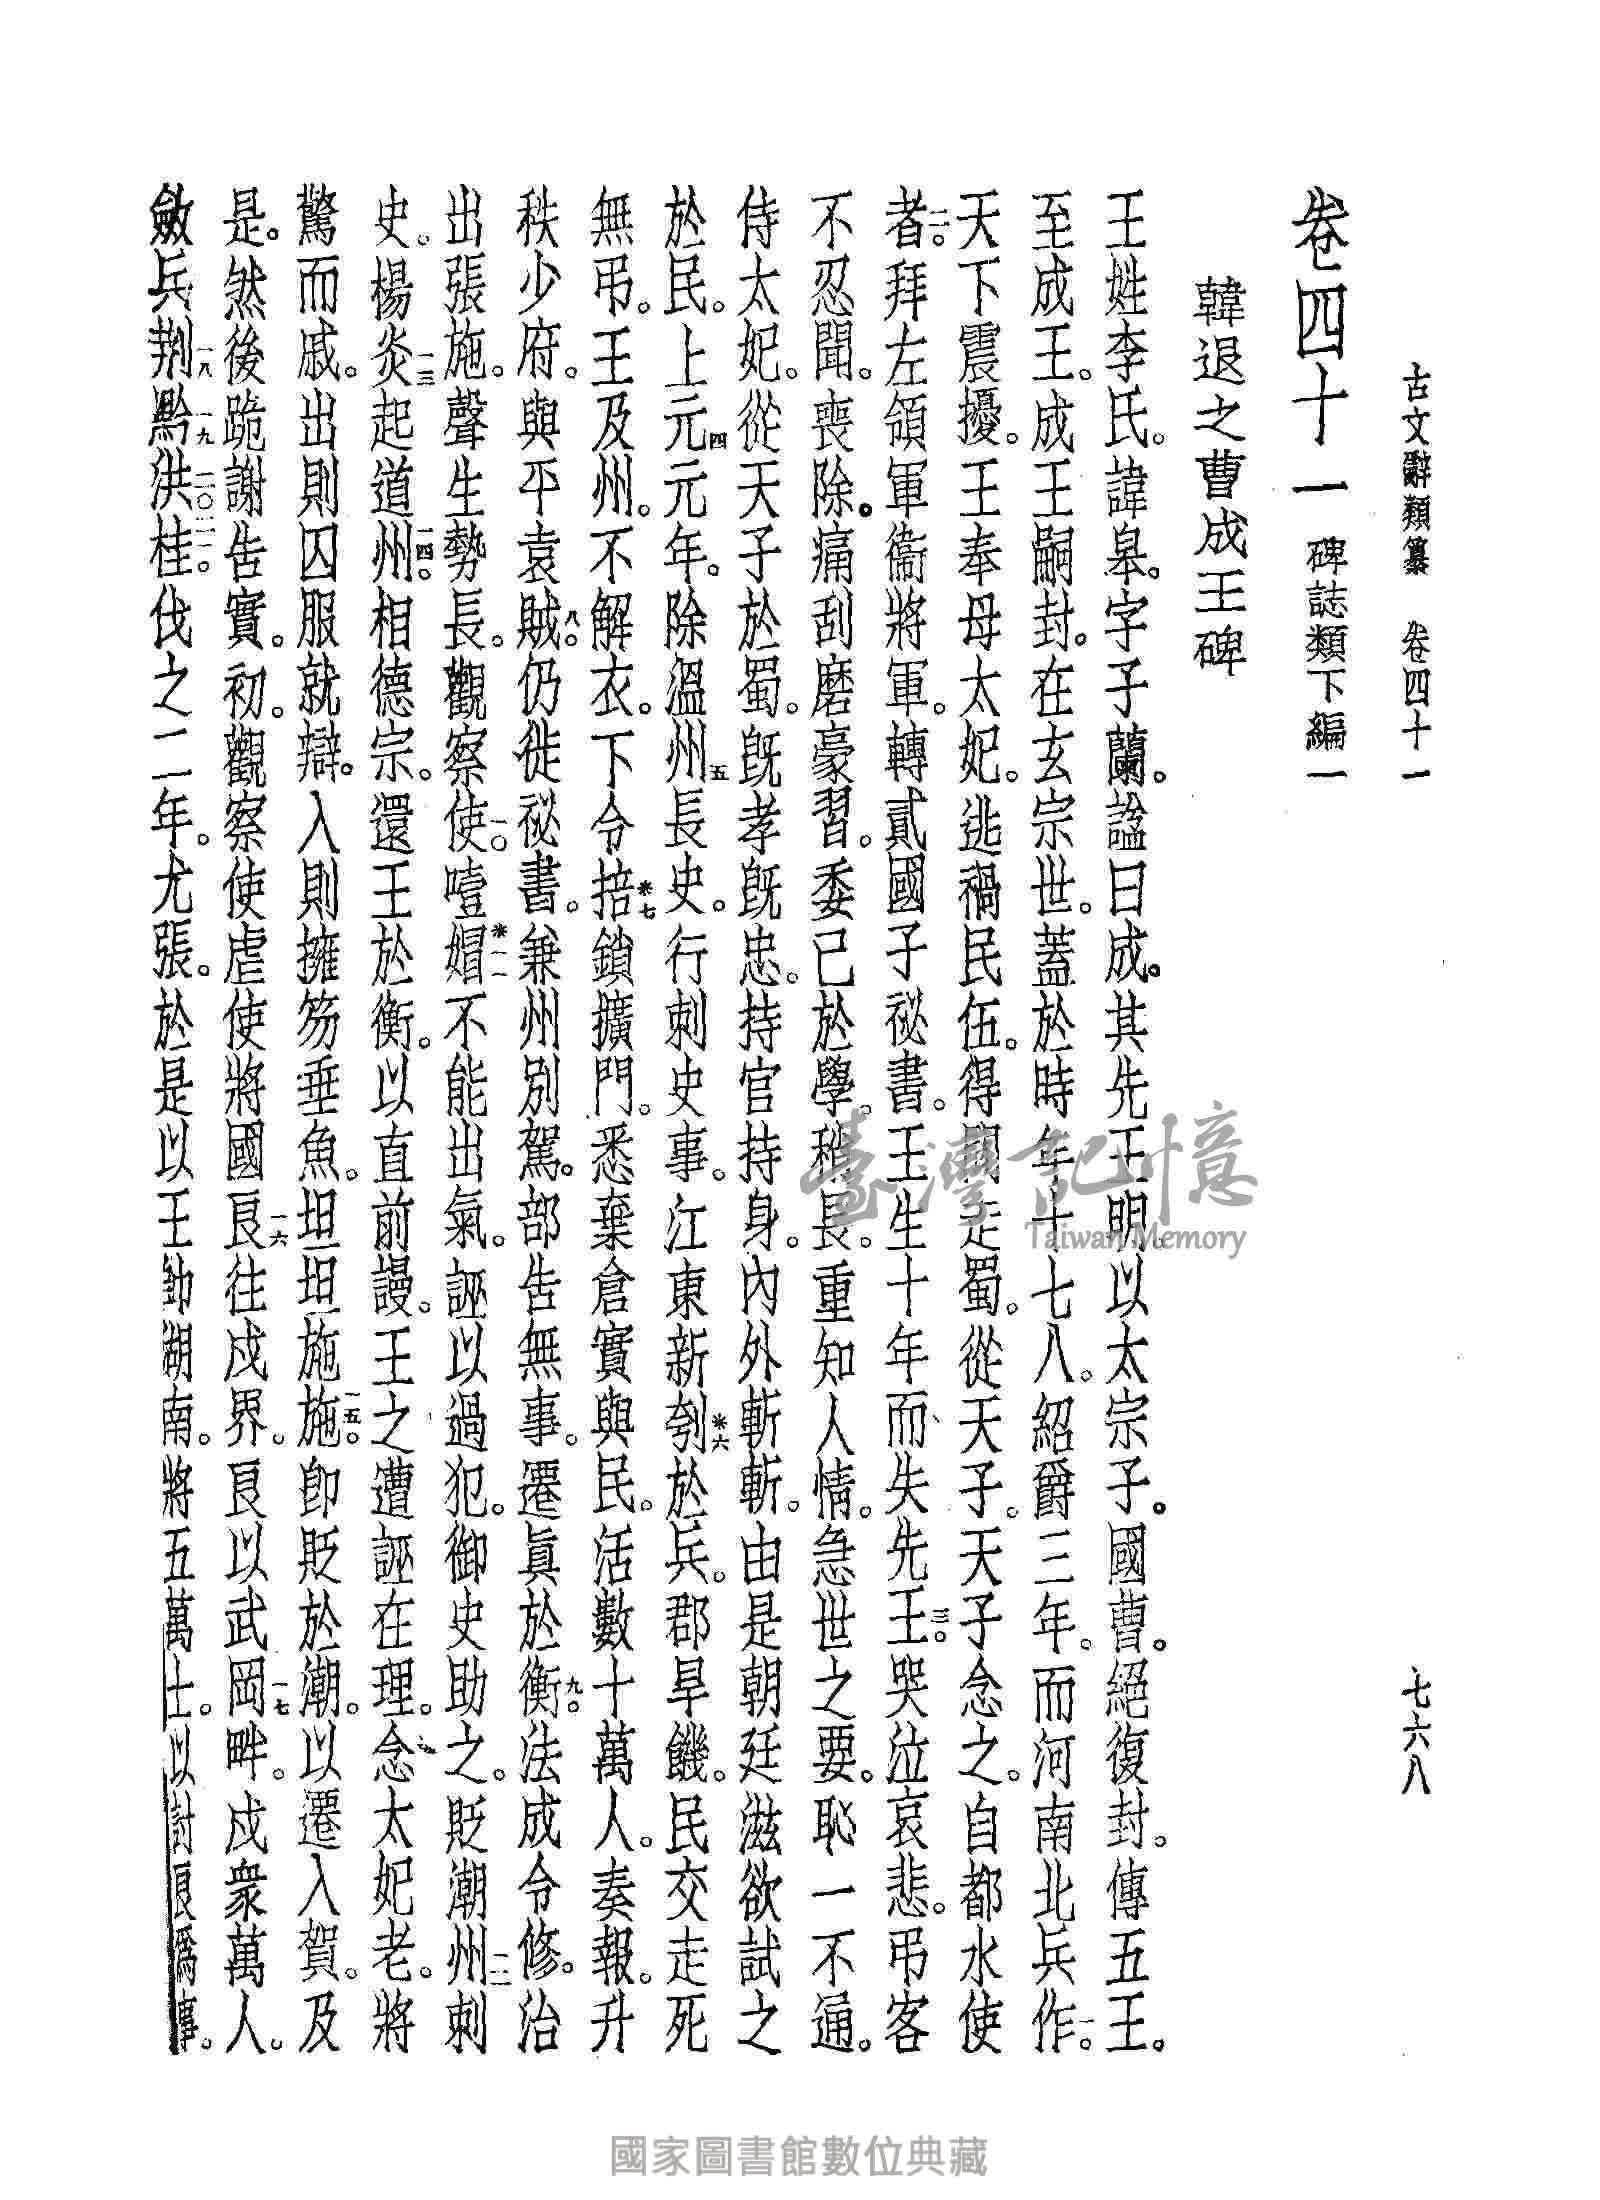 古文辭類纂　卷四十一　七六八
卷四十一　碑誌類下編一
韓退之曹成王碑
王姓李氏。諱皋。字子蘭。諡曰成。其先王明。以太宗子。國曹。絕復封。傳五王。
至成王。成王嗣封。在玄宗世。蓋於時年十七八。紹爵三年。而河南北兵作。一
天下震擾。王奉母太妃。逃禍民伍。得間走蜀。從天子。天子念之。自都水使
者。二拜左領軍衞將軍。轉貳國子祕書。王生十年而失先王。三哭泣哀悲。弔客
不忍聞。喪除。痛刮磨豪習。委己於學。稍長。重知人情。急世之要。恥一不通。
侍太妃。從天子於蜀。既孝既忠。持官持身。內外斬斬。由是朝廷滋欲試之
於民。上元四元年。除溫州五長史。行刺史事。江東新刳※六於兵。郡旱饑。民交走死
無弔。王及州。不解衣。下令掊※七鎖擴門。悉棄倉實與民。活數十萬人。奏報。升
秩少府。與平袁賊。八仍徙祕書。兼州別駕。部告無事。遷眞於衡。九法成令修。治
出張施。聲生勢長。觀察使一〇噎媢※一一不能出氣。誣以過犯。御史助之。貶潮州一二刺
史。楊炎一三起道州。一四相德宗。還王於衡。以直前謾。王之遭誣在理。念太妃老。將
驚而戚。出則囚服就辯。入則擁笏垂魚。坦坦施施。一五卽貶於潮。以遷入賀。及
是。然後跪謝告實。初。觀察使虐使將國良一六往戍界。良以武岡一七畔。戍衆萬人。
斂兵荆一八黔一九洪二〇桂。二一伐之二年。尤張。於是以王帥湖南。將五萬士。以討良爲事。
臺灣記憶
Taiwan Memory
國家圖書館數位典藏